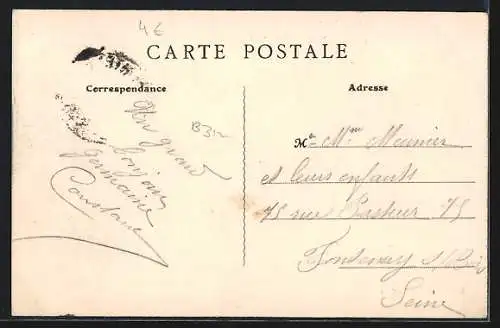 4€
CARTE POSTALE
Correspondance
Adresse
Un grand
bonjour
Germaine
Constant
B3
M. Mme Meunier
et leurs enfants
75 rue Pasteur 75
Fontenay s/Bois
Seine